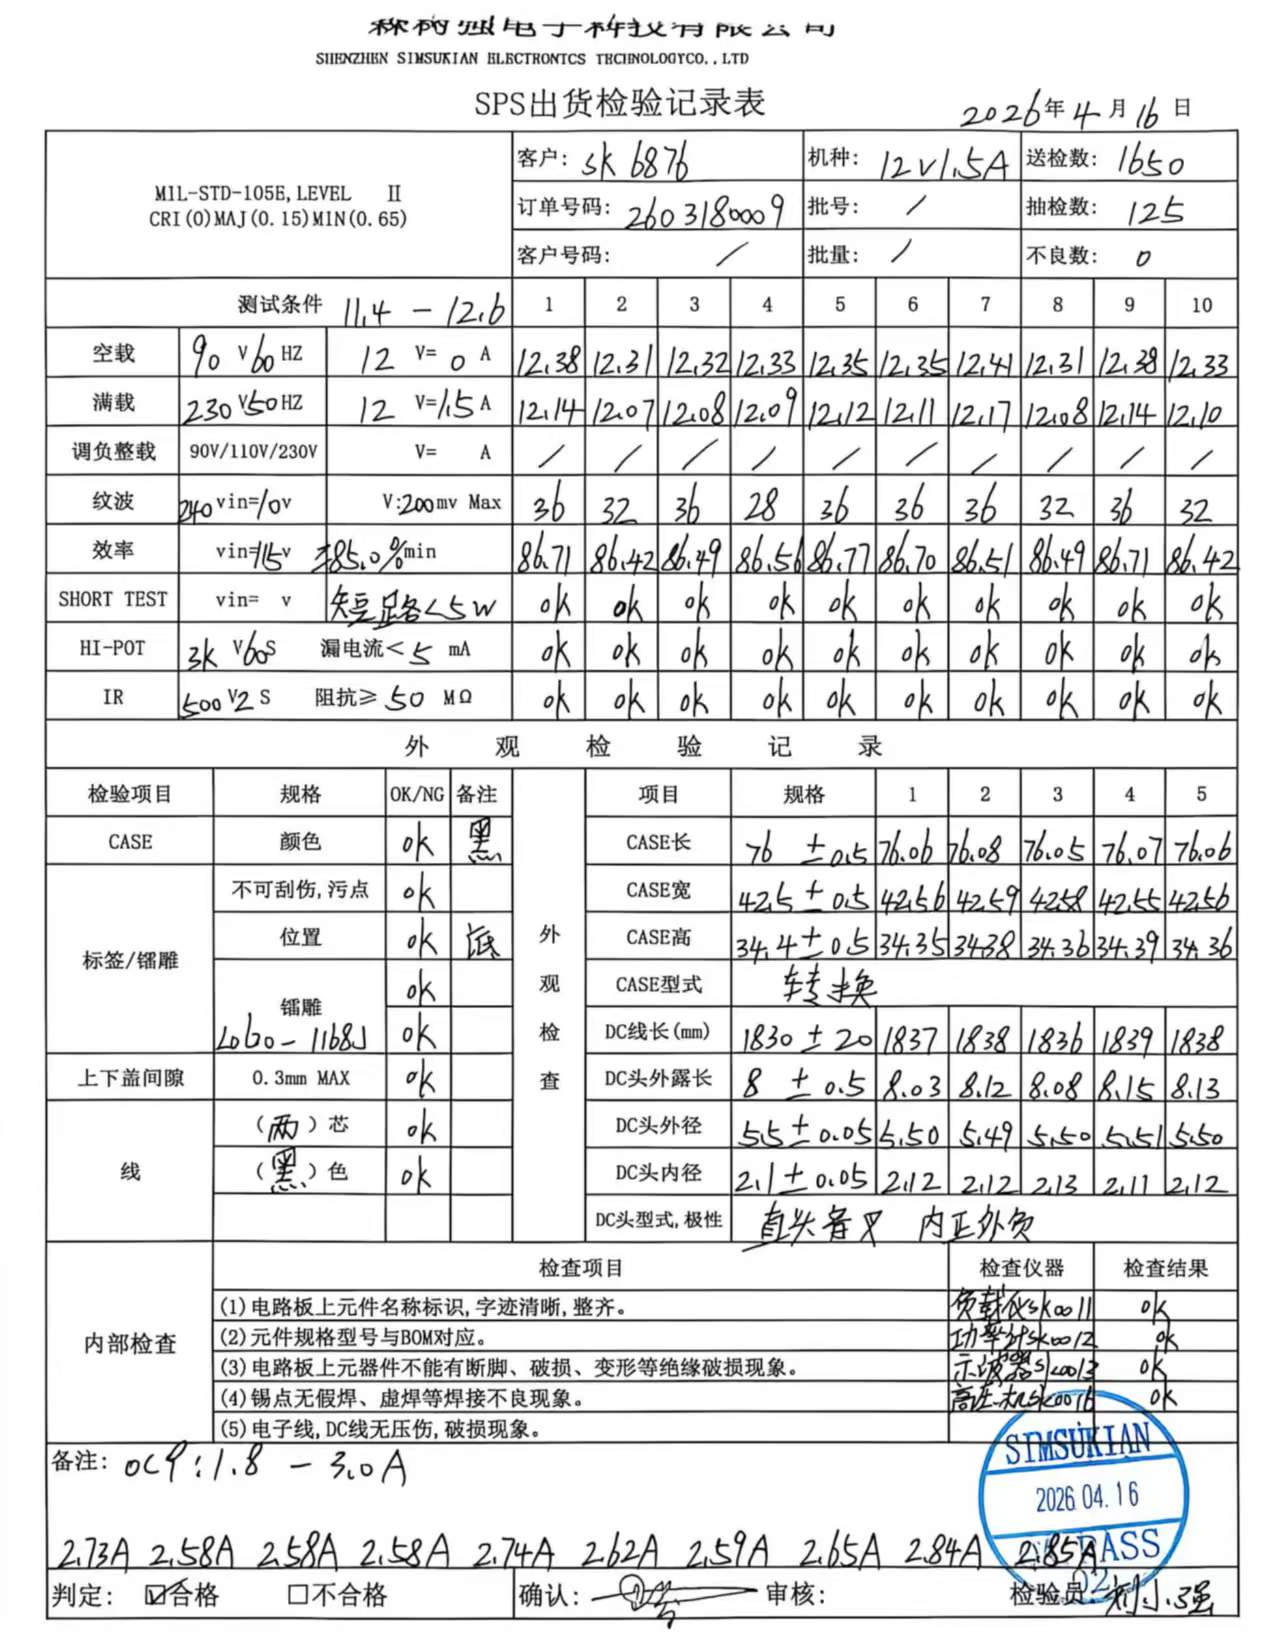 森树强电子科技有限公司
SHENZHEN SIMSUKIAN ELECTRONTCS TECHNOLOGYCO.,LTD
SPS出货检验记录表 2026年4月16日
MIL-STD-105E,LEVEL Ⅱ
CRI(0)MAJ(0.15)MIN(0.65)
客户: SK6876 机种: 12V1.5A 送检数: 1650
订单号码: 2603180009 批号: / 抽检数: 125
客户号码: / 批量: / 不良数: 0
测试条件 11.4-12.6 1 2 3 4 5 6 7 8 9 10
空载 90V60HZ 12V=0A 12.38 12.31 12.32 12.33 12.35 12.35 12.41 12.31 12.38 12.33
满载 230V50HZ 12V=1.5A 12.14 12.07 12.08 12.09 12.12 12.11 12.17 12.08 12.14 12.10
调负整载 90V/110V/230V V= A / / / / / / / / / /
纹波 240vin=/0v V:200mv Max 36 32 36 28 36 36 36 32 36 32
效率 vin=115v ≥85.0%min 86.71 86.42 86.49 86.56 86.77 86.70 86.51 86.49 86.71 86.42
SHORT TEST vin= v 短路<5W ok ok ok ok ok ok ok ok ok ok
HI-POT 3KV60S 漏电流<5mA ok ok ok ok ok ok ok ok ok ok
IR 500V2S 阻抗≥50MΩ ok ok ok ok ok ok ok ok ok ok
外观检验记录
检验项目 规格 OK/NG 备注 项目 规格 1 2 3 4 5
CASE 颜色 ok 黑 CASE长 76±0.5 76.06 76.08 76.05 76.07 76.06
不可刮伤,污点 ok CASE宽 42.5±0.5 42.56 42.59 42.58 42.55 42.56
标签/镭雕 位置 ok 底 外观检查 CASE高 34.4±0.5 34.35 34.38 34.36 34.39 34.36
镭雕 ok CASE型式 转换
L0620-1168J ok DC线长(mm) 1830±20 1837 1838 1836 1839 1838
上下盖间隙 0.3mm MAX ok DC头外露长 8±0.5 8.03 8.12 8.08 8.15 8.13
(两)芯 ok DC头外径 5.5±0.05 5.50 5.49 5.50 5.51 5.50
线 (黑)色 ok DC头内径 2.1±0.05 2.12 2.12 2.13 2.11 2.12
DC头型式,极性 直头音叉 内正外负
检查项目 检查仪器 检查结果
内部检查
(1)电路板上元件名称标识,字迹清晰,整齐。 负载仪SK0011 ok
(2)元件规格型号与BOM对应。 功率计SK0012 ok
(3)电路板上元器件不能有断脚、破损、变形等绝缘破损现象。 示波器SK0013 ok
(4)锡点无假焊、虚焊等焊接不良现象。 高压机SK0016 OK
(5)电子线,DC线无压伤,破损现象。
备注: OCP:1.8-3.0A
SIMSUKIAN
2026.04.16
PASS
02
2.73A 2.58A 2.58A 2.58A 2.74A 2.62A 2.59A 2.65A 2.84A 2.85A
判定: ☑合格 □不合格 确认: 审核: 检验员: 刘小强